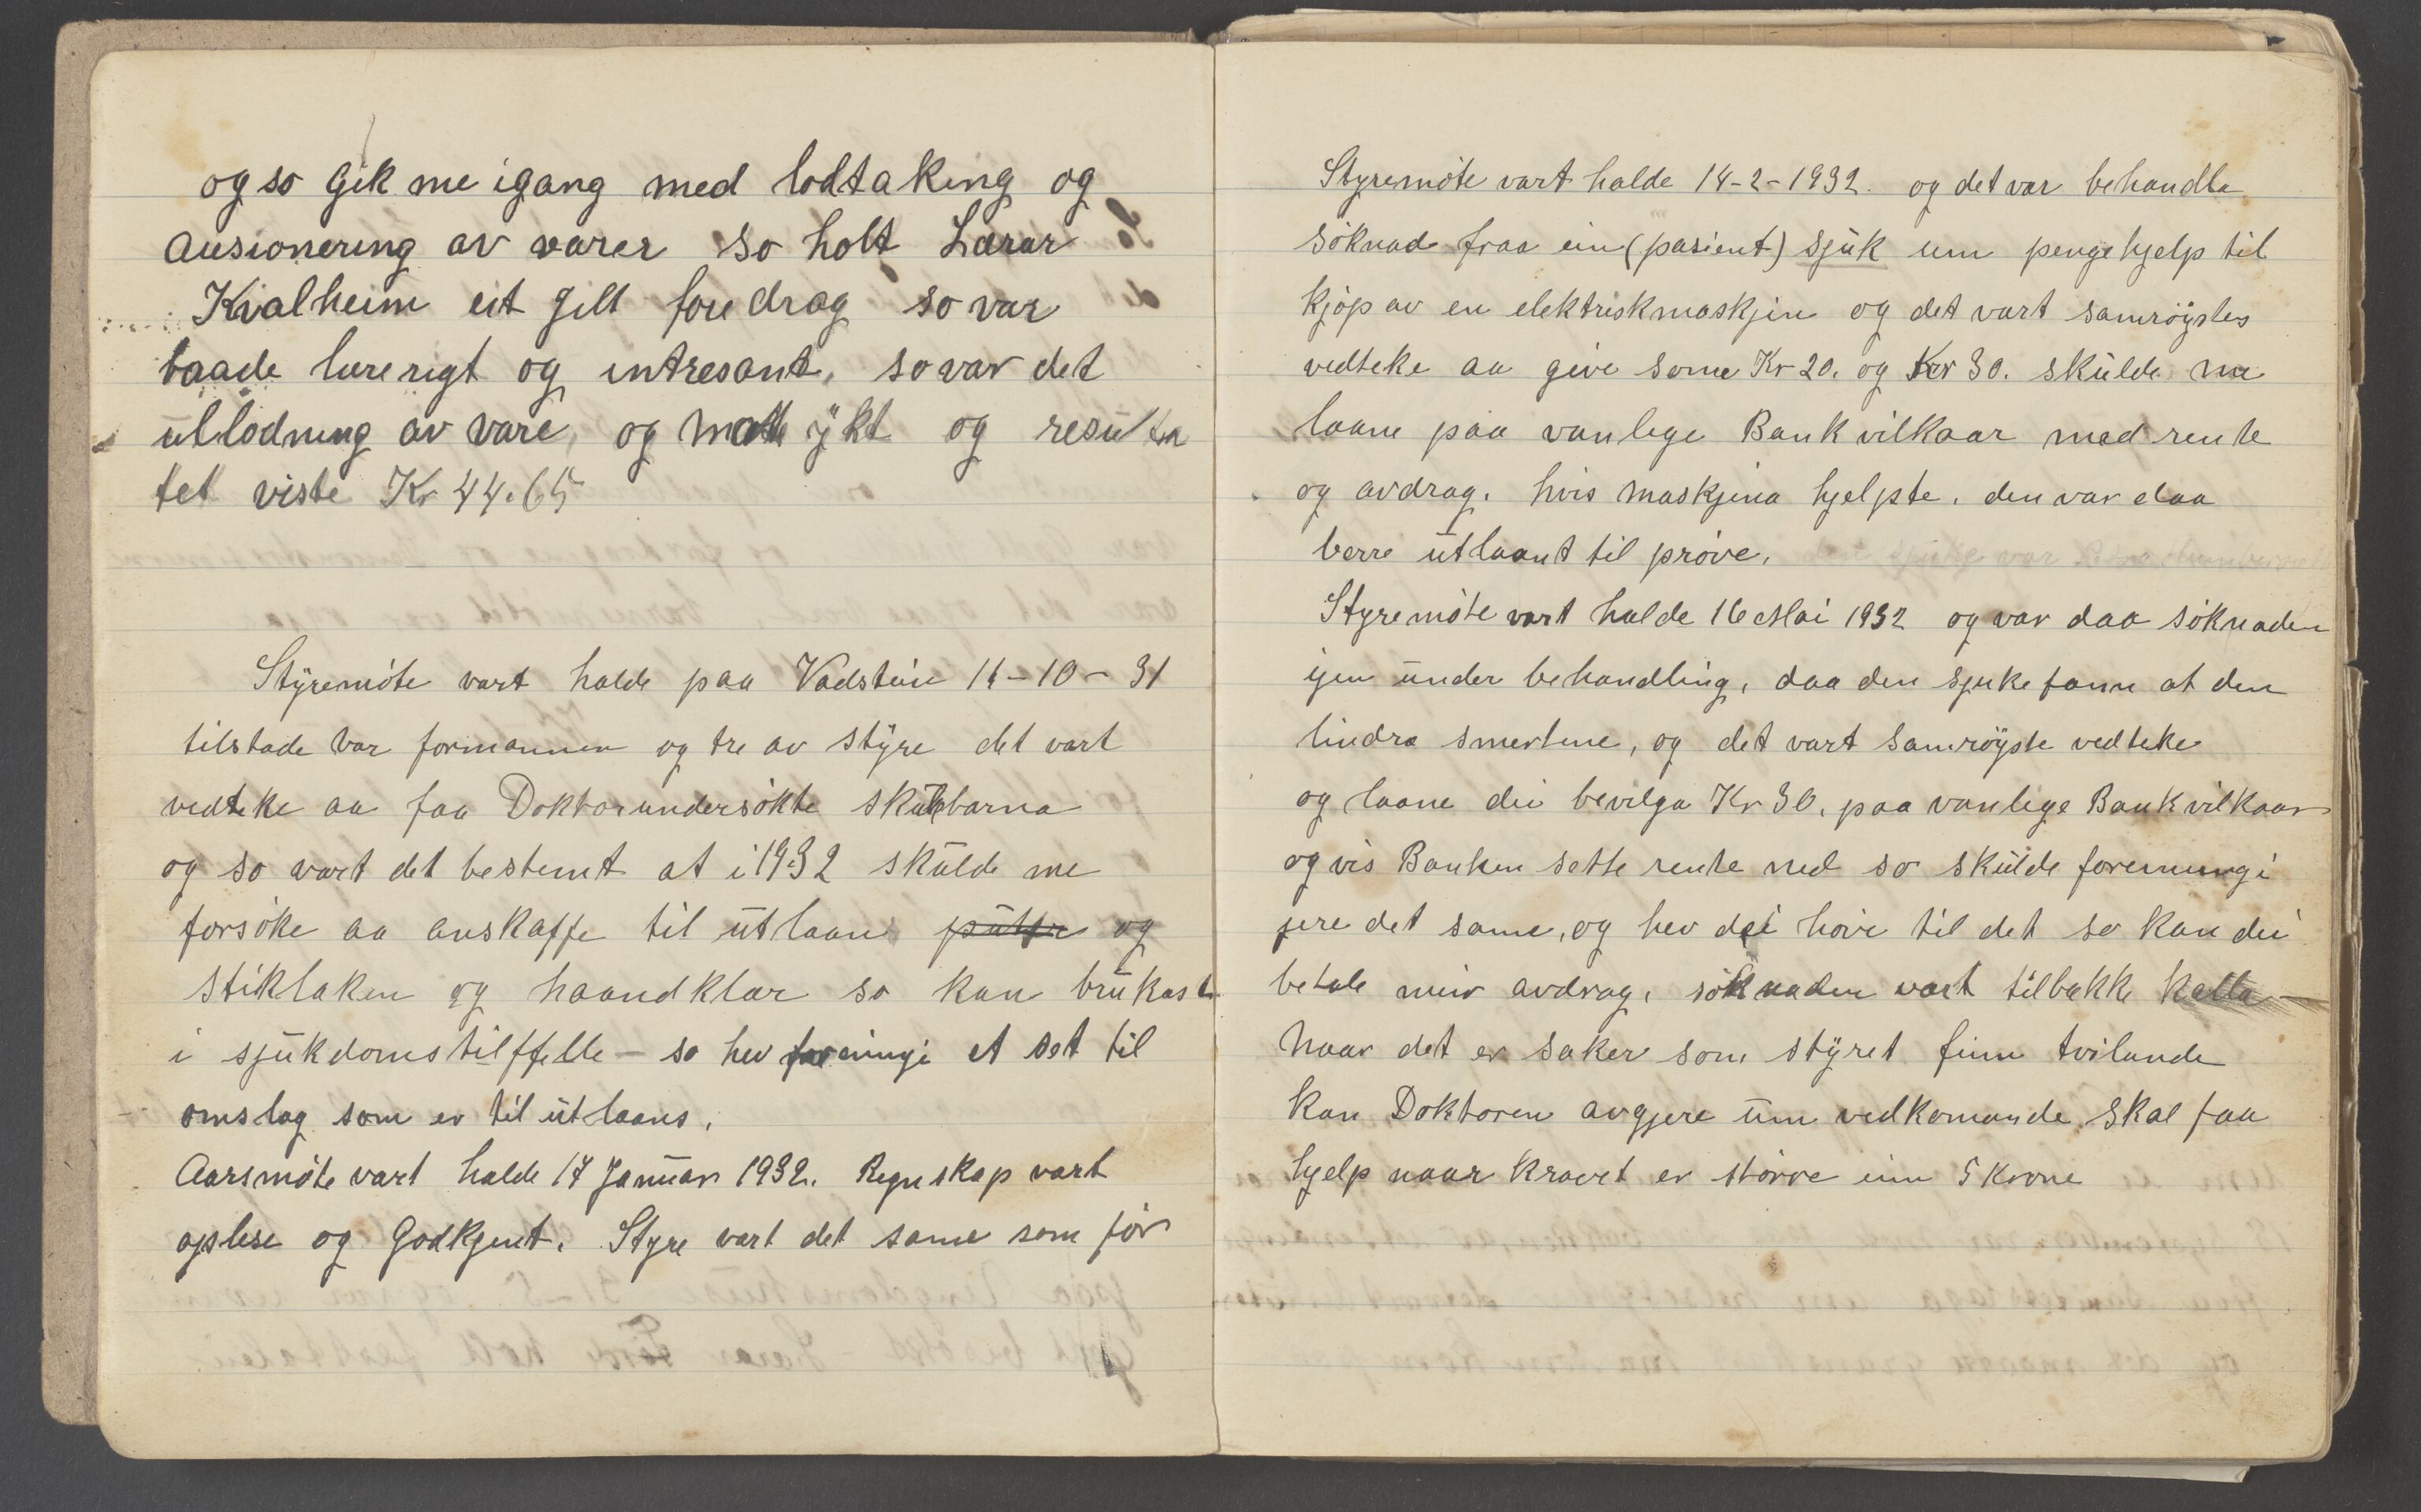 og so gik me igang med lodtaking og
ausionering av varer so holt Lærar
Kvalheim eit gilt foredrag so var
baade lærerigt og intresant, so var det
utlodning av vare, og mottykt og resulta
tet viste Kr 44.65
Styremöte vart halde paa Vadstein 11-10-31
tilstade var formannen og tre av styre det vart
vedteke aa faa Doktorundersökte skülebarna
og so vart det bestemt at i 1932 skülde me
forsöke aa anskaffe til ütlaans pütur og
stiklaken og haandklær so kan brükast
i sjükdomstilffelle - so hev foreningi et set til
omslag som er til ütlaans.
Aarsmöte vart halde 17 Januar 1932. Regnskap vart
oplese og Godkjent. Styre vart det same som för
Styremöte vart halde 14-2-1932. og det var behandla
söknad fraa ein (pasient) sjük um pengehjelp til
kjöp av en elektriskmaskjin og det vart samröystes
vedteke aa give some Kr 20. og Kr 30. skülde me
laane paa vanlege Bankvilkaar med rente
og avdrag. hvis maskjina hjelpte. den var daa
berre ütlaant til pröve.
Styremöte vart halde 16 Mai 1932 og var daa söknaden
igen ünder behandling, daa den sjuke fann at den
lindra smertene, og det vart samröyste vedteke
og laane dei bevilga Kr 30. paa vanlege Bankvilkaar
og vis Banken sette rente ned so skülde foreningi
jere det same, og hev dei höve til det so kan dei
betale meir avdrag, söknaden vart tilbakke kalla
Naar det er saker som styret finn tvilande
kan Doktoren avgjere üm vedkomande skal faa
hjelp naar kravet er större einn 5 krone